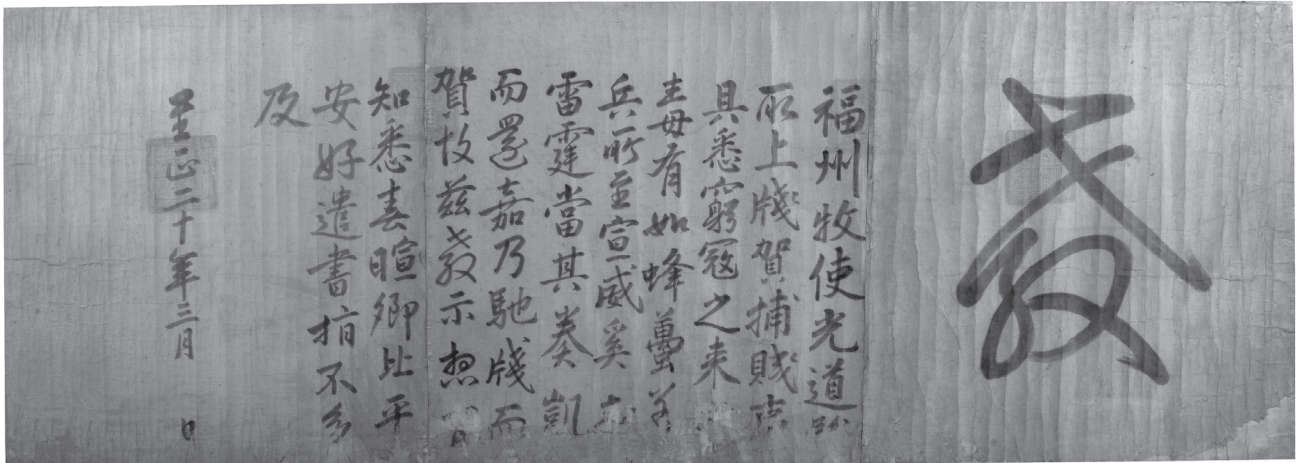 教
福州牧使光道
所上牋賀捕賊
具悉窮寇之来
主毋有如蜂蠆
兵所至宣威奚
雷霆當其奏凱
而還嘉乃馳牋而
賀故兹教示想
知悉春暄卿比平
安好遣書指不多
及
至正二十年三月 日